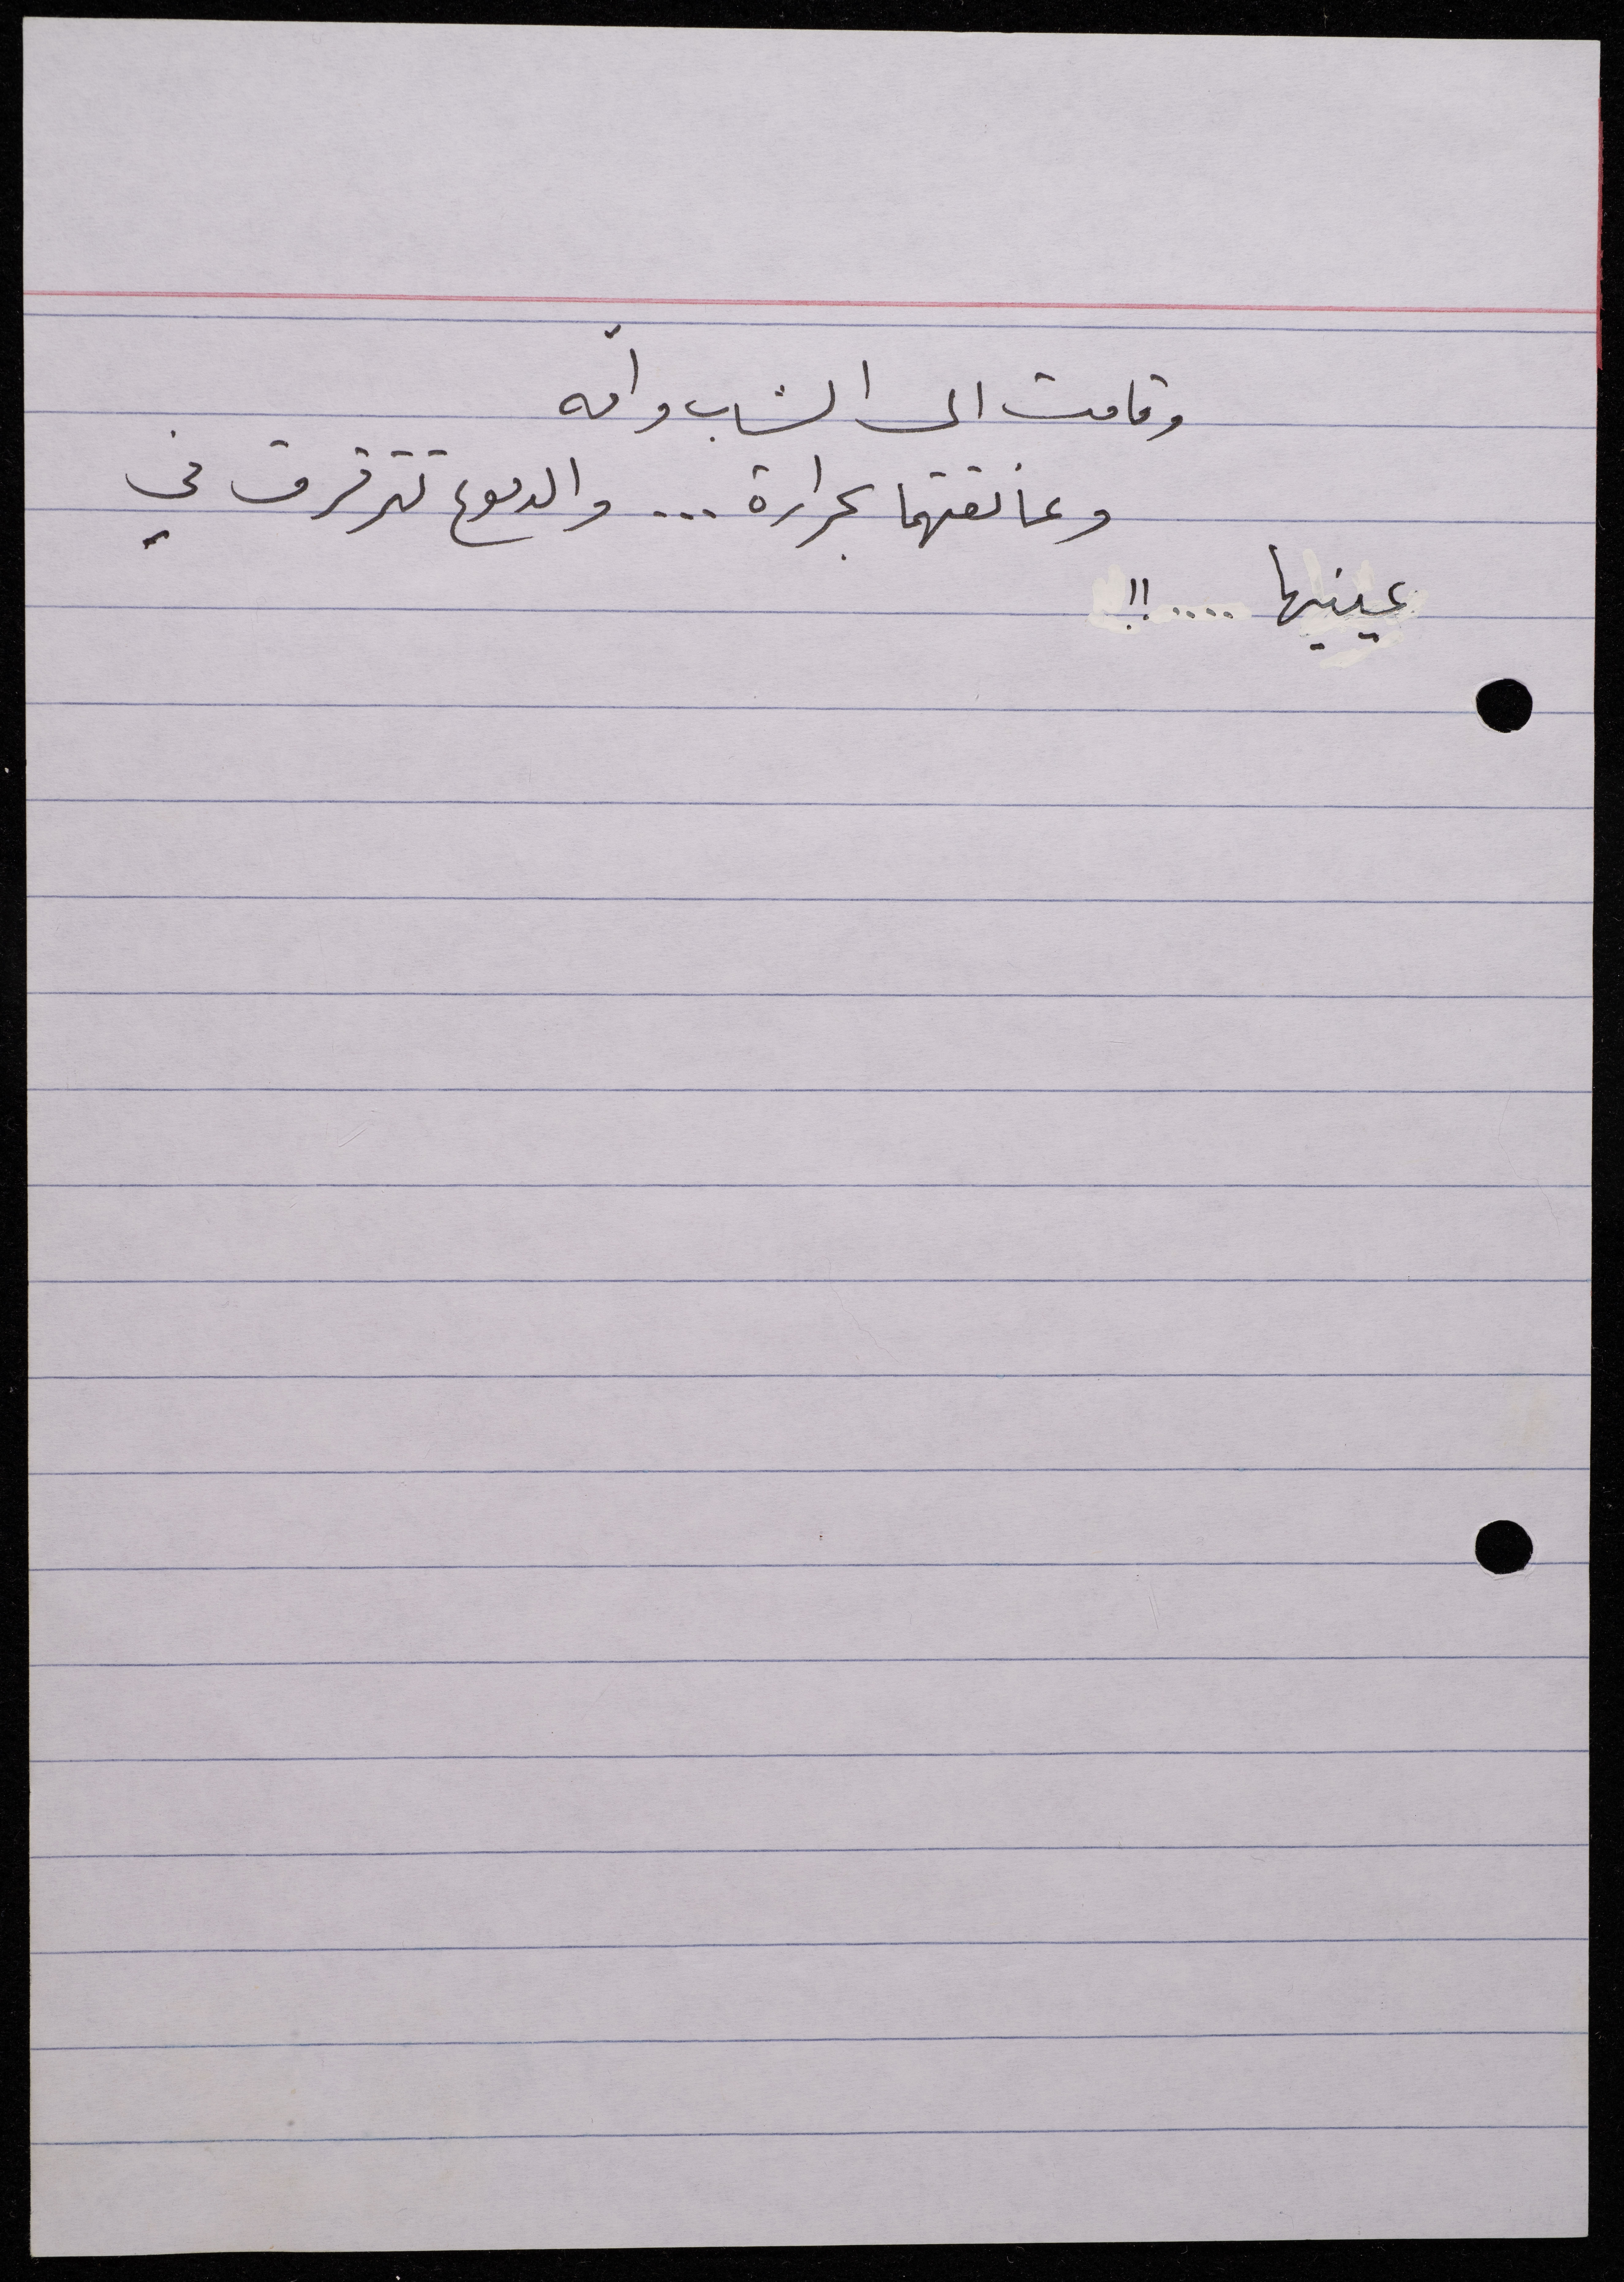 وقامت الى الشاب وامّه
وعانقتهما بحرارة ... والدموع تترقرق في
عينيها .... !!